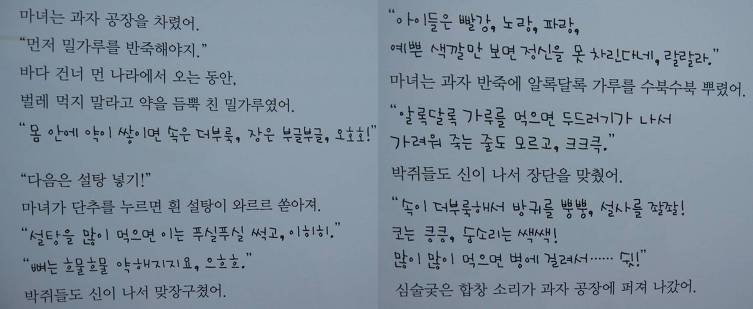 마녀는 과자 공장을 차렸어.
“먼저 밀가루를 반죽해야지.”
바다 건너 먼 나라에서 오는 동안,
벌레 먹지 말라고 약을 듬뿍 친 밀가루였어.
“몸 안에 약이 쌓이면 속은 더부룩, 장은 부글부글, 오호호!”
“다음은 설탕 넣기!”
마녀가 단추를 누르면 흰 설탕이 와르르 쏟아져.
“설탕을 많이 먹으면 이는 푸실푸실 썩고, 이히히.”
“뼈는 흐물흐물 약해지지요, 으흐흐.”
박쥐들도 신이 나서 맞장구쳤어.
“아이들은 빨강, 노랑, 파랑,
예쁜 색깔만 보면 정신을 못 차린다네, 랄랄라.”
마녀는 과자 반죽에 알록달록 가루를 수북수북 뿌렸어.
“알록달록 가루를 먹으면 두드러기가 나서
가려워 죽는 줄도 모르고, 크크큭.”
박쥐들도 신이 나서 장단을 맞췄어.
“속이 더부룩해서 방귀를 뿡뿡, 설사를 좔좔!
코는 킁킁, 숨소리는 쌕쌕!
많이 많이 먹으면 병에 걸려서…… 쉿!”
심술궂은 합창 소리가 과자 공장에 퍼져 나갔어.